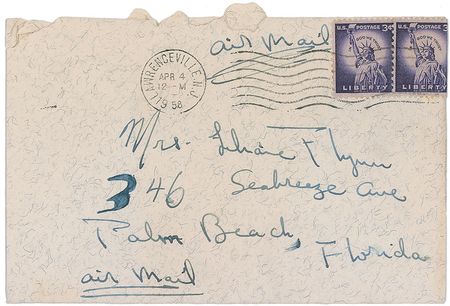 air Mail
LAWRENCEVILLE, N.J.
APR 4
12 - M
1958
U.S. POSTAGE 3¢
IN GOD WE TRUST
LIBERTY
U.S. POSTAGE 3
IN GOD WE TRUST
LIBERTY
Mrs. Liliane Flynn
346 Seabreeze Ave
Palm Beach,
Florida
air Mail